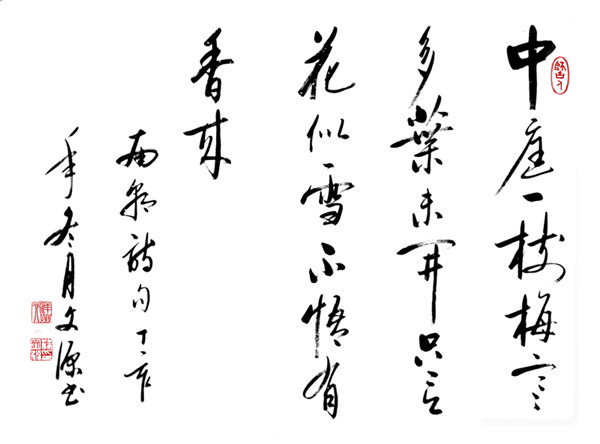 中庭一树梅寒
多葉未开只言
花似雪不悟有
香来
南朝詩句丁亥
年冬月文源书